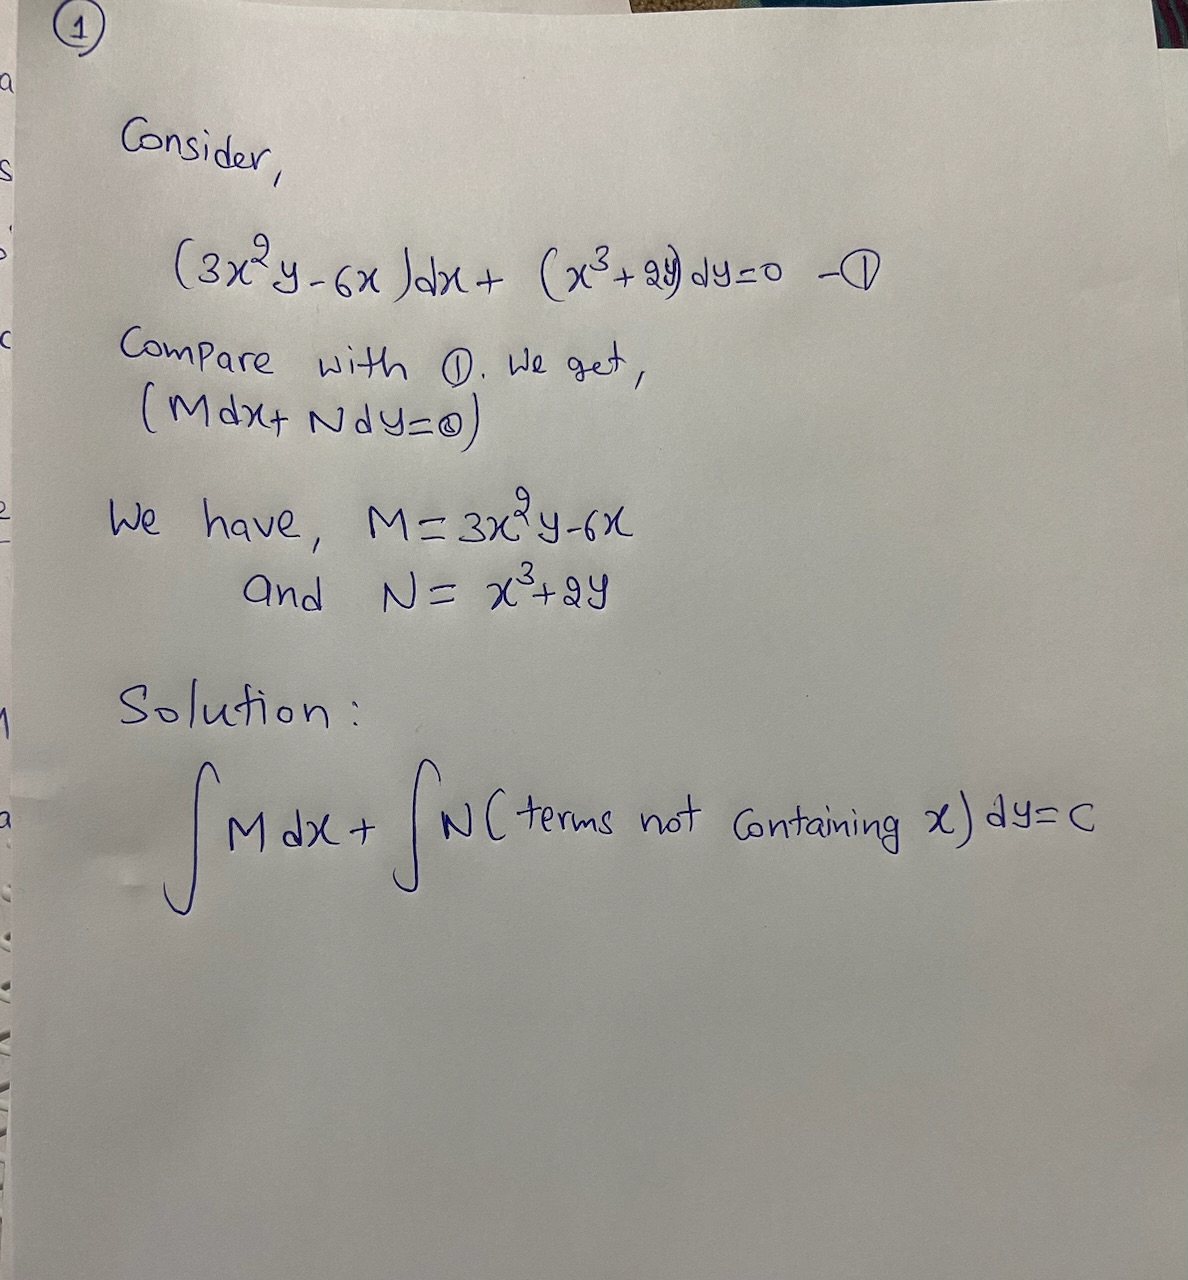 ①
Consider,
(3x²y-6x)dx+ (x³+2y)dy=0 -①
Compare with ①. We get,
(Mdx+ Ndy=0)
We have, M=3x²y-6x
and N= x³+2y
Solution:
∫M dx+ ∫N(terms not containing x)dy=c